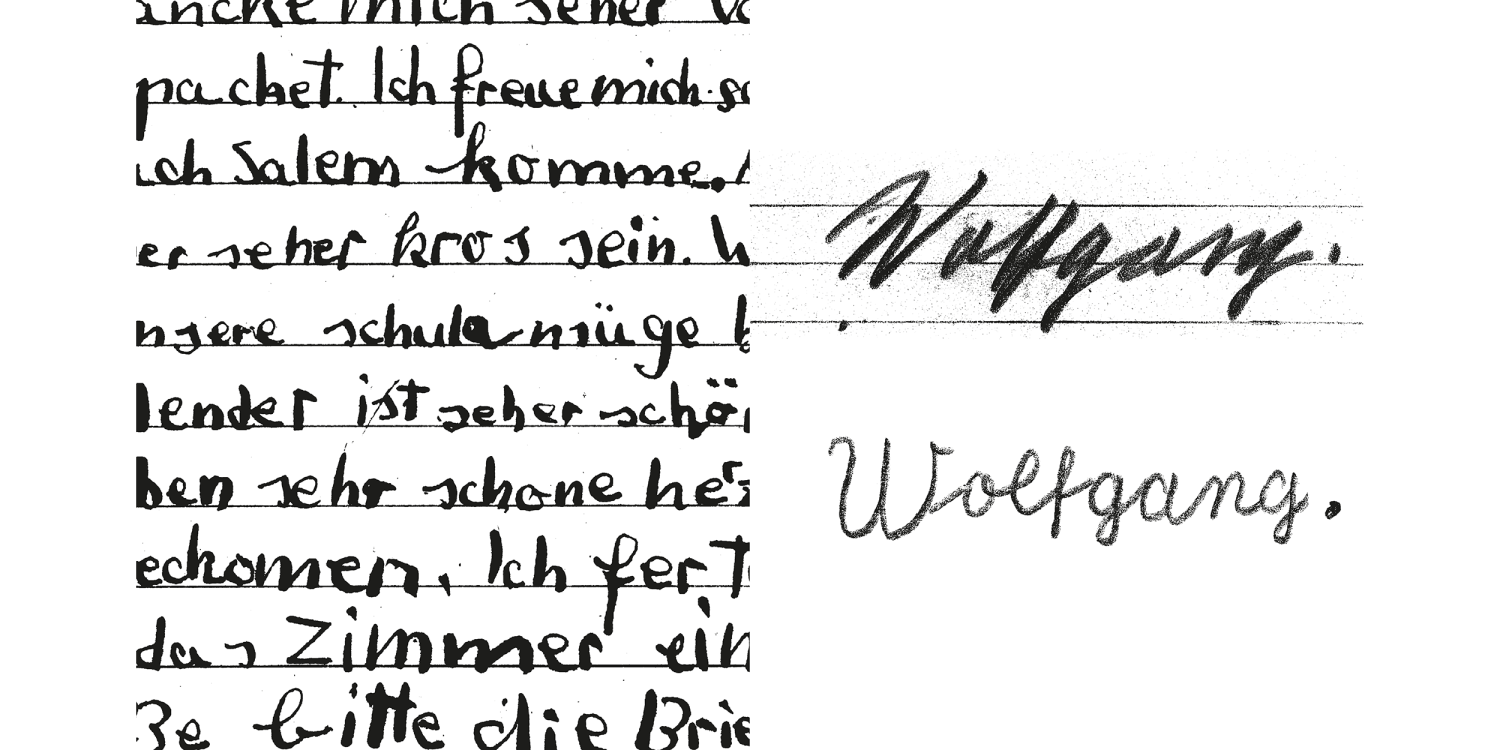 mich seher
pachet. Ich freue mich
ich Salem komme.
er seher kros sein.
schule müge
lender ist seher schön
ben sehr schone
eckomen, Ich fer
das Zimmer ein
Be bitte die Brie
Wolfgang.
Wolfgang.